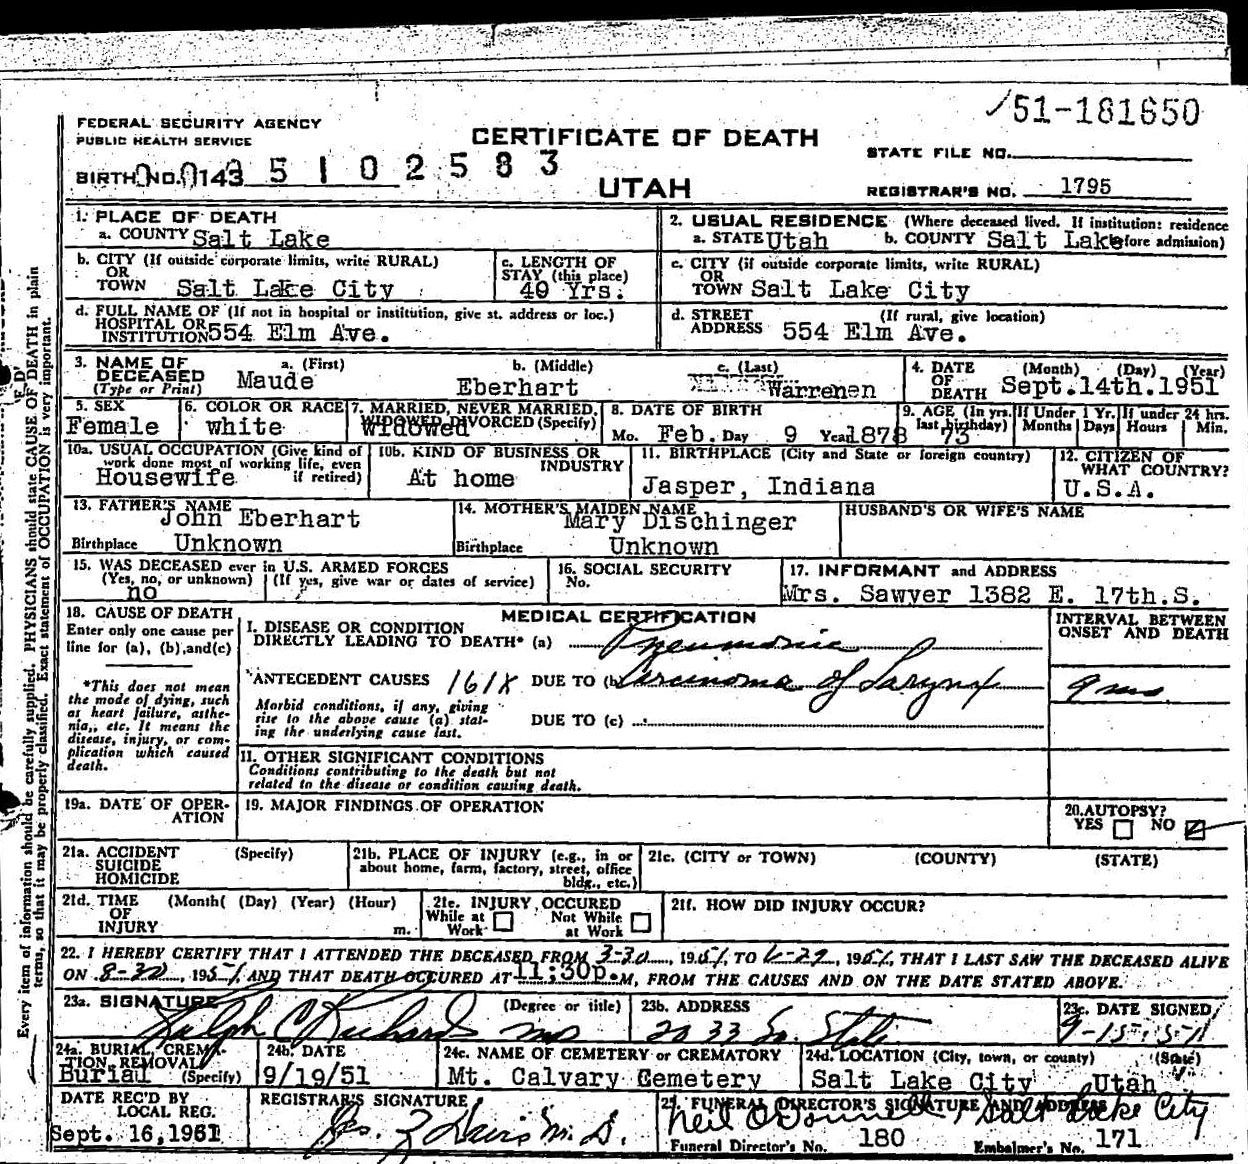 51-181650
FEDERAL SECURITY AGENCY
PUBLIC HEALTH SERVICE
CERTIFICATE OF DEATH
STATE FILE NO.
BIRTH NO. 0143 5 1 0 2 5 8 3
UTAH
REGISTRAR'S NO. 1795
1. PLACE OF DEATH
a. COUNTY Salt Lake
2. USUAL RESIDENCE (Where deceased lived. If institution: residence before admission)
a. STATE Utah b. COUNTY Salt Lake
b. CITY (If outside corporate limits, write RURAL)
OR
TOWN Salt Lake City
c. LENGTH OF
STAY (this place)
40 Yrs.
c. CITY (if outside corporate limits, write RURAL)
OR
TOWN Salt Lake City
d. FULL NAME OF (If not in hospital or institution, give st. address or loc.)
HOSPITAL OR
INSTITUTION 554 Elm Ave.
d. STREET (If rural, give location)
ADDRESS 554 Elm Ave.
3. NAME OF
DECEASED
(Type or Print)
a. (First)
Maude
b. (Middle)
Eberhart
c. (Last)
Warrenen
4. DATE (Month) (Day) (Year)
OF
DEATH Sept.14th.1951
5. SEX
Female
6. COLOR OR RACE
white
7. MARRIED, NEVER MARRIED,
WIDOWED, DIVORCED (Specify)
Widowed
8. DATE OF BIRTH
Mo. Feb. Day 9 Year 1878
9. AGE (In yrs.
last birthday)
73
If Under 1 Yr.
Months Days
If under 24 hrs.
Hours Min.
10a. USUAL OCCUPATION (Give kind of
work done most of working life, even
if retired)
Housewife
10b. KIND OF BUSINESS OR
INDUSTRY
At home
11. BIRTHPLACE (City and State or foreign country)
Jasper, Indiana
12. CITIZEN OF
WHAT COUNTRY?
U.S.A.
13. FATHER'S NAME
John Eberhart
Birthplace Unknown
14. MOTHER'S MAIDEN NAME
Mary Dischinger
Birthplace Unknown
HUSBAND'S OR WIFE'S NAME
15. WAS DECEASED ever in U.S. ARMED FORCES
(Yes, no, or unknown) (If yes, give war or dates of service)
no
16. SOCIAL SECURITY
No.
17. INFORMANT and ADDRESS
Mrs. Sawyer 1382 E. 17th.S.
18. CAUSE OF DEATH
Enter only one cause per
line for (a), (b),and(c)
*This does not mean
the mode of dying, such
as heart failure, asthe-
nia,, etc. It means the
disease, injury, or com-
plication which caused
death.
MEDICAL CERTIFICATION
I. DISEASE OR CONDITION
DIRECTLY LEADING TO DEATH* (a) Pneumonia
ANTECEDENT CAUSES 161X DUE TO (b) Carcinoma of Larynx
Morbid conditions, if any, giving
rise to the above cause (a) stat-
ing the underlying cause last.
DUE TO (c)
INTERVAL BETWEEN
ONSET AND DEATH
9 mo.
11. OTHER SIGNIFICANT CONDITIONS
Conditions contributing to the death but not
related to the disease or condition causing death.
19a. DATE OF OPER-
ATION
19. MAJOR FINDINGS OF OPERATION
20.AUTOPSY?
YES NO
21a. ACCIDENT (Specify)
SUICIDE
HOMICIDE
21b. PLACE OF INJURY (e.g., in or
about home, farm, factory, street, office
bldg., etc.)
21c. (CITY or TOWN) (COUNTY) (STATE)
21d. TIME (Month( (Day) (Year) (Hour)
OF
INJURY m.
21e. INJURY OCCURED
While at Work Not While at Work
21f. HOW DID INJURY OCCUR?
22. I HEREBY CERTIFY THAT I ATTENDED THE DECEASED FROM 3-30, 1951 TO 6-29, 1951, THAT I LAST SAW THE DECEASED ALIVE
ON 8-30, 1951 AND THAT DEATH OCCURED AT 11:30p.M, FROM THE CAUSES AND ON THE DATE STATED ABOVE.
23a. SIGNATURE (Degree or title)
Ralph C Richards MD
23b. ADDRESS
2033 So. State
23c. DATE SIGNED
9-15-51
24a. BURIAL, CREMA-
TION, REMOVAL
(Specify)
Burial
24b. DATE
9/19/51
24c. NAME OF CEMETERY or CREMATORY
Mt. Calvary Cemetery
24d. LOCATION (City, town, or county) (State)
Salt Lake City Utah
DATE REC'D BY
LOCAL REG.
Sept. 16,1951
REGISTRAR'S SIGNATURE
M. D.
25. FUNERAL DIRECTOR'S SIGNATURE AND ADDRESS
Neil O'Donnell, Salt Lake City
Funeral Director's No. 180 Embalmer's No. 171
Every item of information should be carefully supplied. PHYSICIANS should state CAUSE OF DEATH in plain
terms, so that it may be properly classified. Exact statement of OCCUPATION is very important.